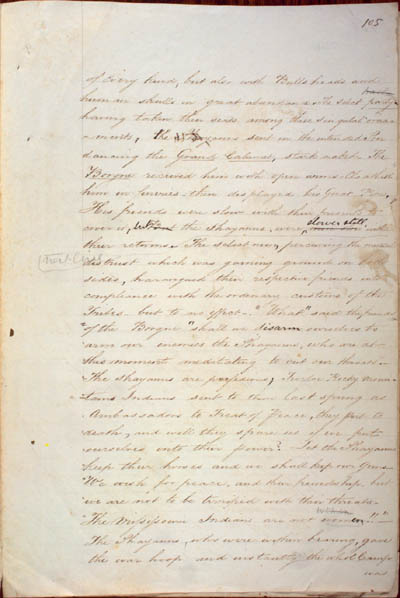 105
of Every kind, but also with Bulls heads and
human skulls in great abundance. The select party
having taken their seats among these singular orna
ments, the Shayanns sent in the intended
dancing the Grand Calumet, The
Borgne received him with open arms.
him in furries - then displayed his Great
His friends were slow with their presents to
cover it, but the Shayanns, were slower still with
their returns. The select men, perceiving the mutual
distrust which was gaining ground on both
sides, harangued their respective friends in
compliance with the ordinary customs of the
Tribes. but to no effect - "What" said the friends
"of the Borgne" shall we disarm ourselves to
arm our enemies the Shayanns, who are at
this moment meditating to cut our throats -
The Shayanns are perfidious, Twelve Rocky Moun
tains Indians sent to them last spring as
Ambassadors to Treat of Peace, they put to
death, and will they spare us if we put
ourselves into their power? Let the Shayanns
keep their horses and we shall keep our Guns.
We wish for peace, and their friendship, but
we are not to be terrified with their threats -
The Missisourii Indians are not women!!"
The Shayanns, who were within hearing, gave
the war hoop and instantly the whole Camp
was